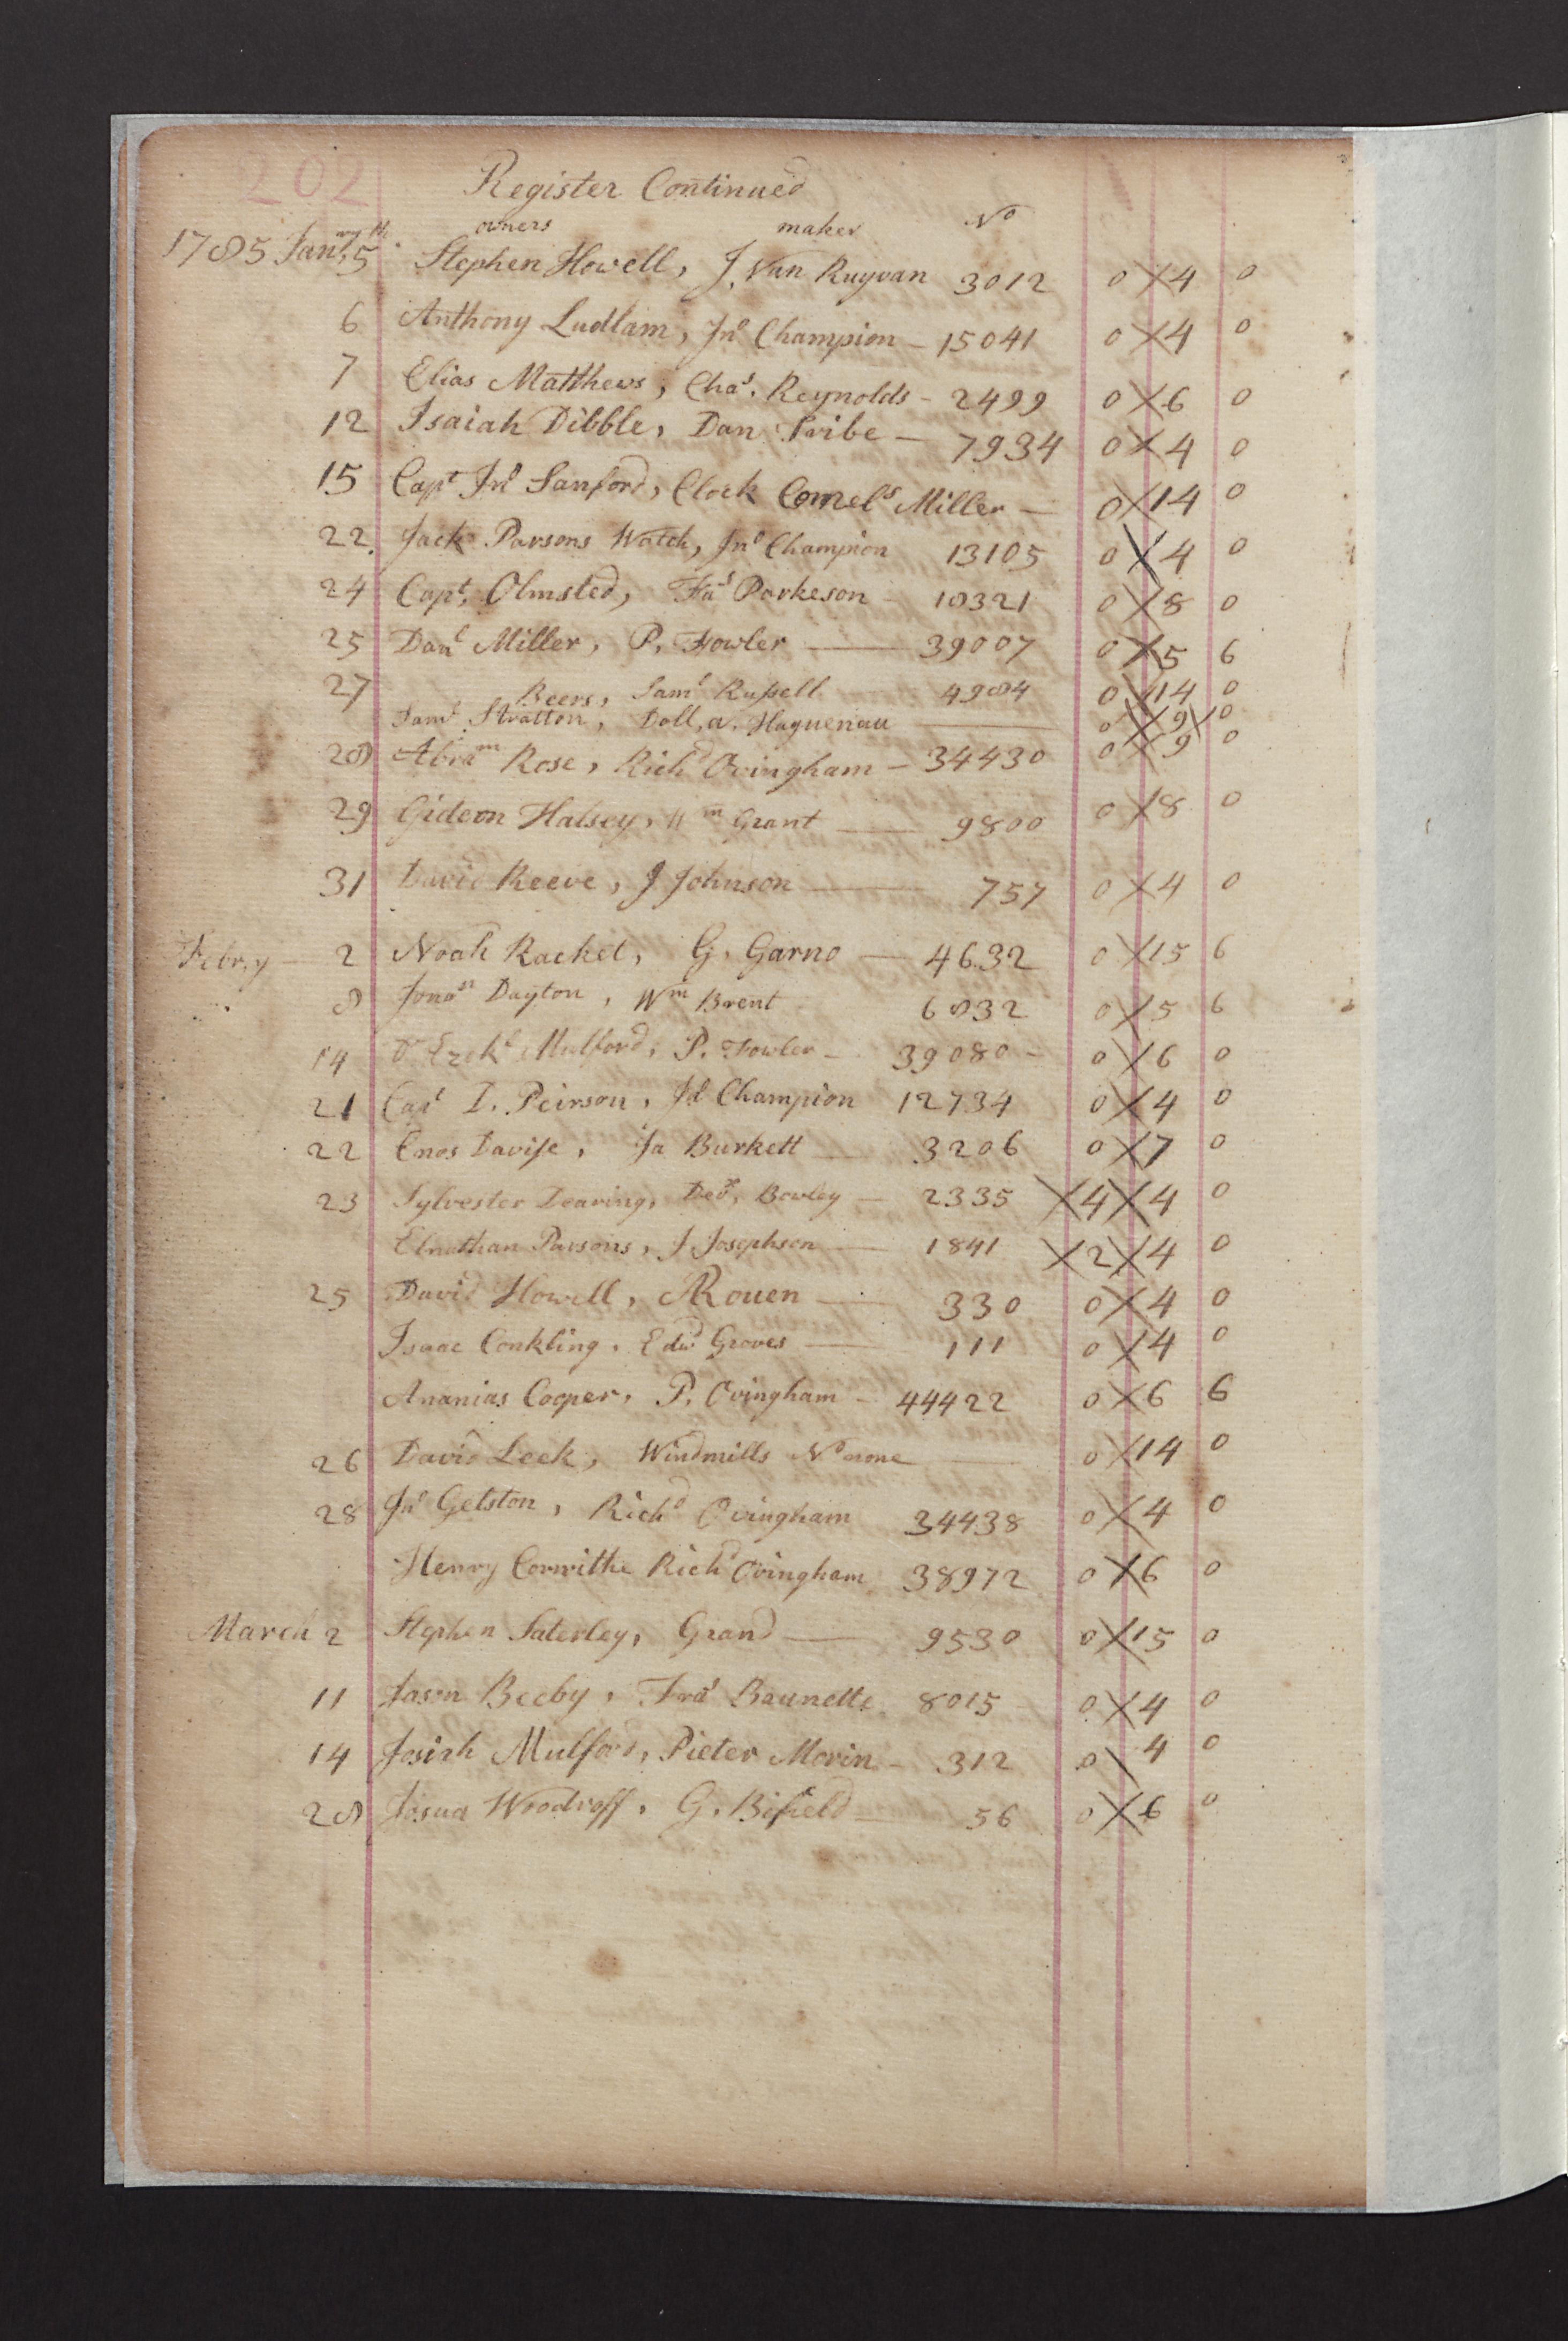 202
Register Continued
owners maker No
1785 Janry 5th Stephen Howell, J. Van Ruyvan 3012 0 X 4 0
6 Anthony Ludlam, Jno Champion - 15041 0 X 4 0
7 Elias Matthews, Chas. Reynolds - 2499 0 X 6 0
12 Isaiah Dibble, Dan Tribe - 7934 0 X 4 0
15 Capt Jno Sanford, Clock Cornels Miller - 0 X 14 0
22 Jack Parsons Watch, Jno Champion 13105 0 X 4 0
24 Capt. Olmsted, Fas Parkeson - 18321 0 X 8 0
25 Danl Miller, P. Fowler - 39007 0 X 5 6
27 Beers, Saml Russell 4984 0 X 14 0
Saml Stratton, Doll, a. Haguenau - 0 X 9 X 0
28 Abram Rose, Richd Ovingham - 34430 0 X 9 0
29 Gideon Halsey, Wm Grant - 9800 0 X 8 0
31 David Reeve, J Johnson - 757 0 X 4 0
Febry - 2 Noah Racket, G. Garno - 4632 0 X 15 6
8 Jonan Dayton, Wm Brent 6832 0 X 5 6
14 Dr Ezekl Mulford, P. Fowler - 39080 - 0 X 6 0
21 Capt D. Peirson, Jno Champion 12734 0 X 4 0
22 Enos Davise, Ja Burkett - 3206 0 X 7 0
23 Sylvester Dearing, Devs. Bowley - 2335 X 4 X 4 0
Elnathan Parsons, J. Josephson - 1841 X 2 X 4 0
25 David Howell, Rouen - 330 0 X 4 0
Isaac Conkling, Edwd Groves - 111 0 X 4 0
Ananias Cooper, P. Ovingham - 44422 0 X 6 6
26 David Leek, Windmills No none - 0 X 14 0
28 Jno Gelston, Richd Ovingham 34438 0 X 4 0
Henry Corwithe Richd Ovingham 38972 0 X 6 0
March 2 Stephen Saterley, Grand - 9530 0 X 15 0
11 Jason Beeby, Fras Baunette 8015 - 0 X 4 0
14 Josiah Mulford, Pieter Morin - 312 0 \ 4 0
28 Josua Woodroff, G. Bifield - 56 0 X 6 0